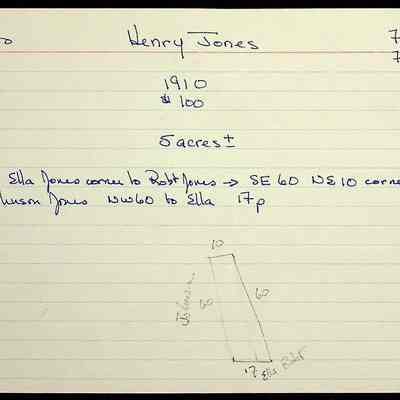 Henry Jones 7
7
1910
$100
5 acres ±
Ella Jones corner to Robt Jones → SE 60 NE 10 corne
hnson Jones NW 60 to Ella 17p
10
60
60
Johnson
17 Ella Robt